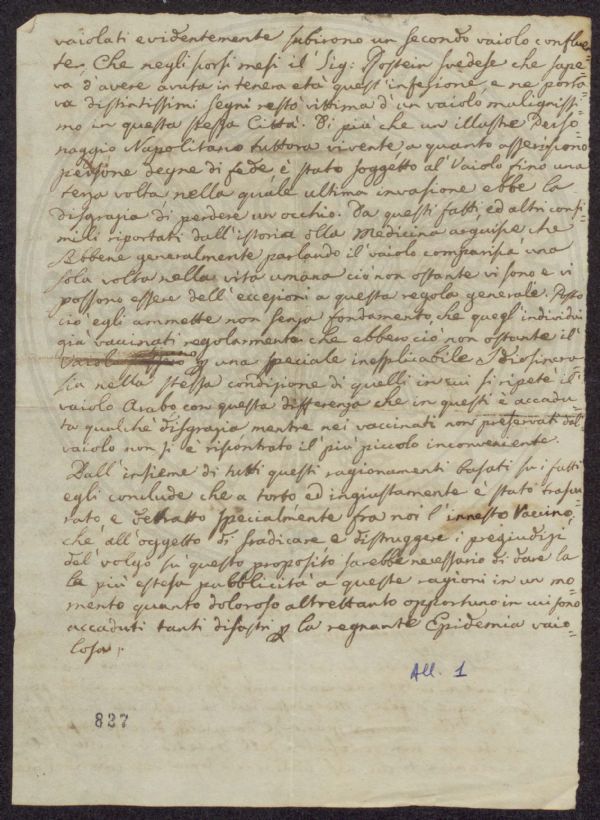 vaiolati evidentemente subirono un secondo vaiolo conflue=
te, Che negli scorsi mesi il Sig: Rostein svedese che sape=
va d'avere avuta in tenera età quest'infezione, e ne porta=
va distintissimi segni restò vittima d'un vaiolo malignissi=
mo in questa stessa Città. Di più che un illustre Perso=
naggio Napolitano tuttora vivente a quanto asseriscono
persone degne di fede, è stato soggetto al Vaiolo fino una
terza volta, nella quale ultima invasione ebbe la
disgrazia di perdere un'occhio. Da questi fatti, ed altri consi=
mili riportati dall'istoria della Medicina arguisce che
sebbene generalmente parlando il vaiolo comparisca una
sola volta nella vita umana ciò non ostante vi sono e vi
possono essere dell'eccezioni a questa regola generale. Posto
ciò egli ammette non senza fondamento che quegl'individui
già vaccinati regolarmente che ebbero ciò non ostante il
Vaiolo p una speciale inesplicabile Idiosincra
sia nella stessa condizione di quelli in cui si ripetè il
vaiolo Arabo con questa differenza che in questi è accadu=
ta qualche disgrazia mentre nei vaccinati non preservati dal
vaiolo non si è riscontrato il più piccolo inconveniente.
Dall'insieme di tutti questi ragionamenti basati su i fatti
egli conclude che a torto ed ingiustamente è stato trascu=
rato e detratto specialmente fra noi l'innesto Vaccino,
che all'oggetto di sradicare e distruggere i pregiudizi
del volgo su questo proposito sarebbe necessario di dare la
la più estesa pubblicità a queste ragioni in un mo=
mento quanto doloroso altrettanto opportuno in cui sono
accaduti tanti disastri p la regnante Epidemia vaio=
losa.
All. 1
827